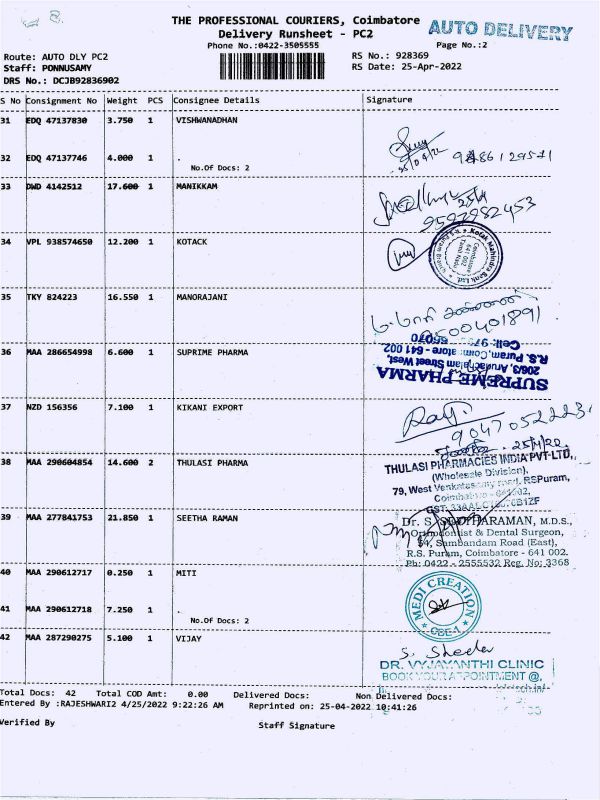 THE PROFESSIONAL COURIERS, Coimbatore
AUTO DELIVERY
Delivery Runsheet - PC2
Phone No.:0422-3505555
Page No.:2
Route: AUTO DLY PC2
RS No.: 928369
Staff: PONNUSAMY
RS Date: 25-Apr-2022
DRS No.: DCJB92836902
S No Consignment No Weight PCS Consignee Details Signature
31 EDQ 47137830 3.750 1 VISHWANADHAN
32 EDQ 47137746 4.000 1 .
No.Of Docs: 2
25/04/22
33 DWD 4142512 17.600 1 MANIKKAM
25/4
9592982453
34 VPL 938574650 12.200 1 KOTACK
Kotak Mahindra Bank Ltd.
Coimbatore
641 002
Tamil Nadu
35 TKY 824223 16.550 1 MANORAJANI
9500401891
36 MAA 286654998 6.600 1 SUPRIME PHARMA
SUPREME PHARMA
206/3, Arunachalam Street West,
R.S. Puram, Coimbatore - 641 002
Cell: 66070
37 NZD 156356 7.100 1 KIKANI EXPORT
9047052223
25/4/22
38 MAA 290604854 14.600 2 THULASI PHARMA
THULASI PHARMACIES INDIA PVT-LTD,
(Wholesale Division),
79, West Venkatasamy road, RSPuram,
Coimbatore - 641002,
39 MAA 277841753 21.850 1 SEETHA RAMAN
Dr. S. SEETHARAMAN, M.D.S.,
Orthodontist & Dental Surgeon,
Sambandam Road (East),
R.S. Puram, Coimbatore - 641 002.
Ph: 0422 - 2555532 Reg. No: 3368
40 MAA 290612717 0.250 1 MITI
41 MAA 290612718 7.250 1 .
No.Of Docs: 2
MEDI CREATION
CBE-A
42 MAA 287290275 5.100 1 VIJAY
DR. VYJAYANTHI CLINIC
BOOK YOUR APPOINTMENT @,
Total Docs: 42 Total COD Amt: 0.00 Delivered Docs: Non Delivered Docs:
Entered By :RAJESHWARI2 4/25/2022 9:22:26 AM Reprinted on: 25-04-2022 10:41:26
Verified By
Staff Signature